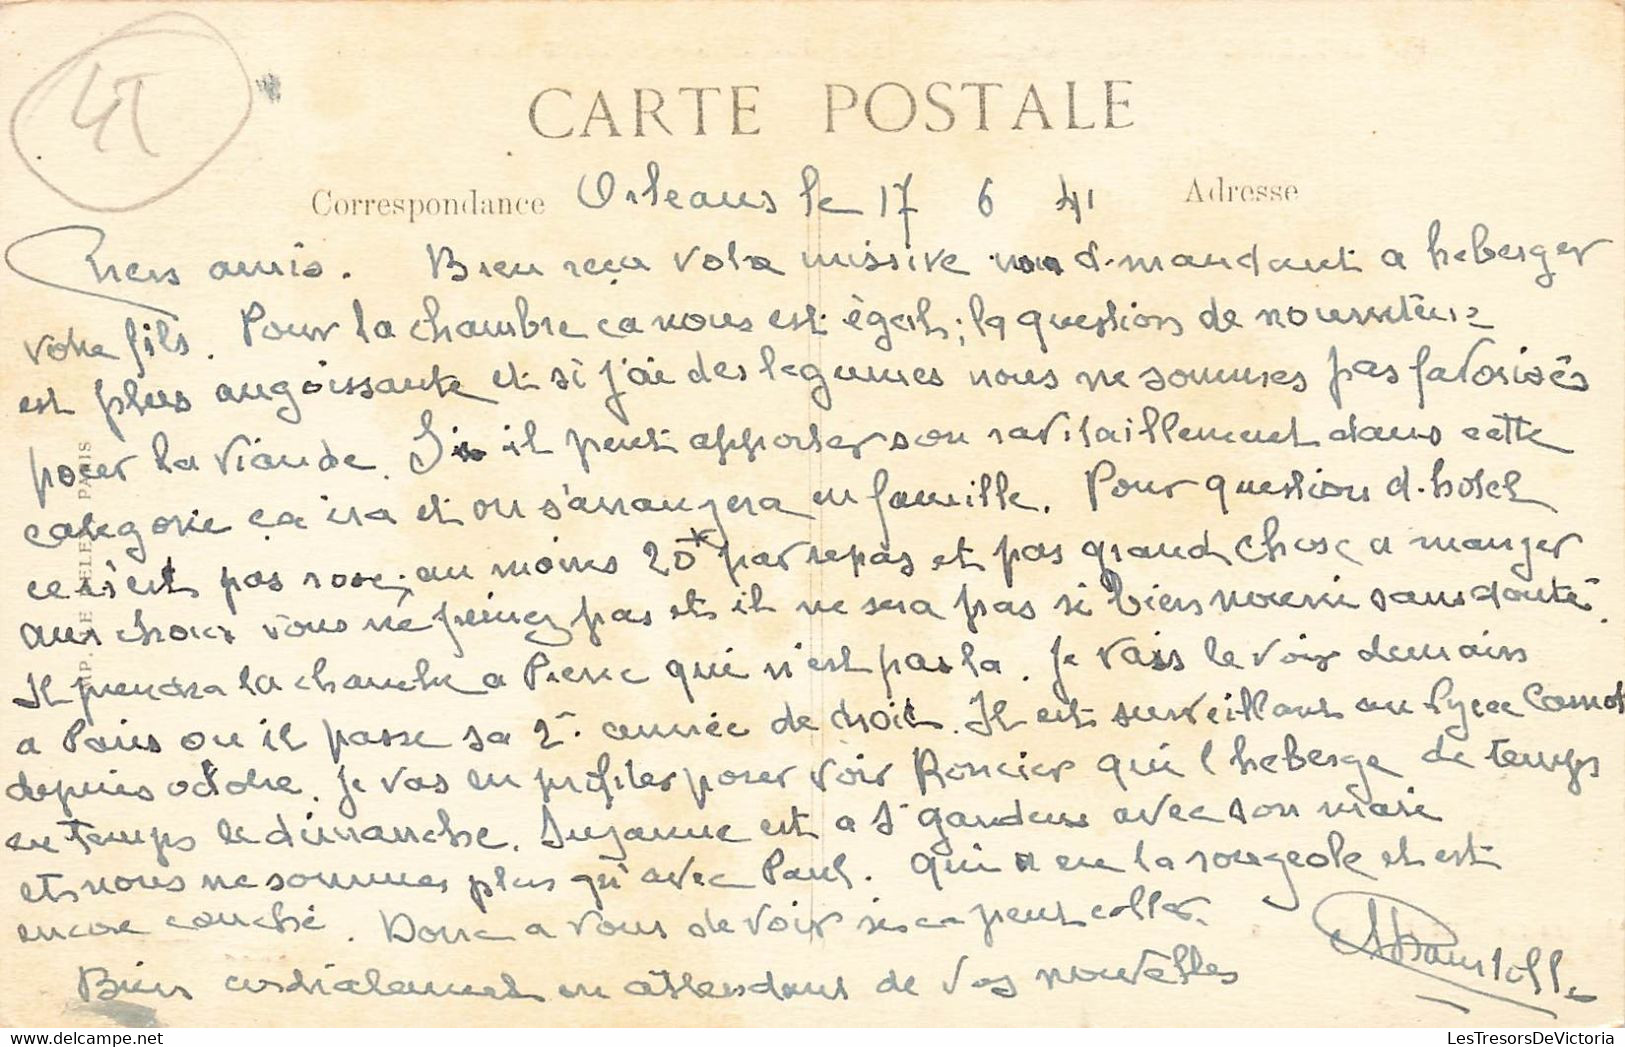 41
CARTE POSTALE
Correspondance Orleans le 17 6 41 Adresse
Chers amis. Bien reçu votre missive demandant a heberger
votre fils. Pour la chambre ca nous est égal; la question de nourriture
est plus angoissante et si j'ai des legumes nous ne sommes pas favorisés
pour la viande. Si il peut apporter son ravitaillement dans cette
categorie ça ira et on s'arrangera en famille. Pour question d'hotel
ce n'est pas rose; au moins 20f par repas et pas grand chose a manger
aux choux vous ne peinez pas et il ne sera pas si bien nourri sans doute.
Il prendra la chambre a Pierre qui n'est pas la. Je vais le voir demain
a Paris ou il passe sa 2e année de droit. Il est surveillant au Lycee Carnot
depuis octobre. Je vas en profiter pour voir Roncier qui l'heberge de temps
en temps le dimanche. Suzanne est a St Gaudens avec son mari
et nous ne sommes plus qu'avec Paul. Qui a eu la rougeole et est
encore couché. Donc a vous de voir si ca peut coller.
Bien cordialement en attendant de vos nouvelles
IMP. PARIS
LesTresorsDeVictoria